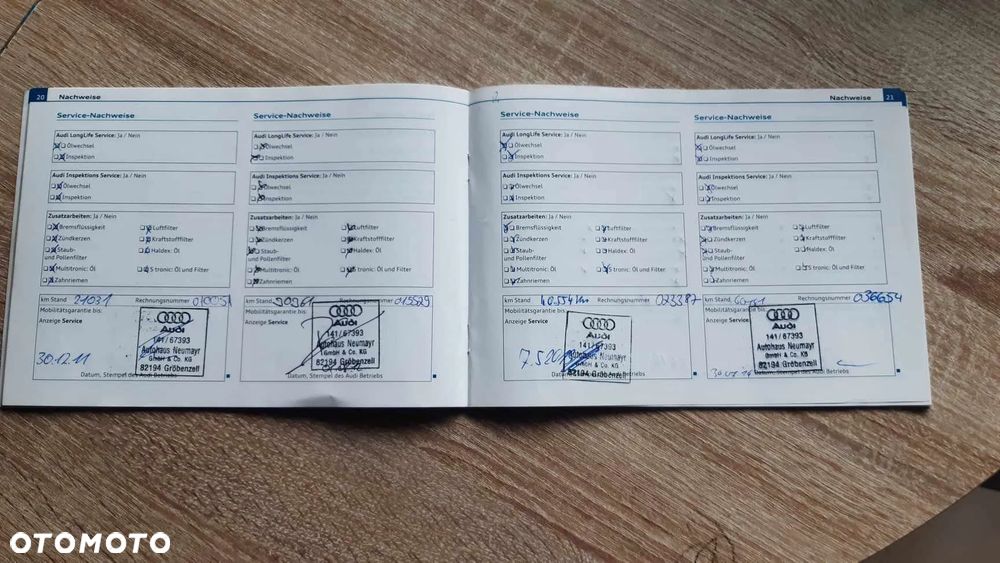 20 Nachweise
Service-Nachweise
Audi LongLife Service: Ja / Nein
Ölwechsel
Inspektion
Audi Inspektions Service: Ja / Nein
Ölwechsel
Inspektion
Zusatzarbeiten: Ja / Nein
Bremsflüssigkeit Luftfilter
Zündkerzen Kraftstofffilter
Staub- Haldex: Öl
und Pollenfilter
Multitronic: Öl S tronic: Öl und Filter
Zahnriemen
km Stand 21031 Rechnungsnummer
Mobilitätsgarantie bis:
Anzeige Service
Audi
141/67393
Autohaus Neumayr
GmbH & Co. KG
82194 Gröbenzell
30.12.11
Datum, Stempel des Audi Betriebs
Service-Nachweise
Audi LongLife Service: Ja / Nein
Ölwechsel
Inspektion
Audi Inspektions Service: Ja / Nein
Ölwechsel
Inspektion
Zusatzarbeiten: Ja / Nein
Bremsflüssigkeit Luftfilter
Zündkerzen Kraftstofffilter
Staub- Haldex: Öl
und Pollenfilter
Multitronic: Öl S tronic: Öl und Filter
Zahnriemen
km Stand Rechnungsnummer 015529
Mobilitätsgarantie bis:
Anzeige Service
Audi
141/67393
Autohaus Neumayr
GmbH & Co. KG
82194 Gröbenzell
Datum, Stempel des Audi Betriebs
Nachweise 21
Service-Nachweise
Audi LongLife Service: Ja / Nein
Ölwechsel
Inspektion
Audi Inspektions Service: Ja / Nein
Ölwechsel
Inspektion
Zusatzarbeiten: Ja / Nein
Bremsflüssigkeit Luftfilter
Zündkerzen Kraftstofffilter
Staub- Haldex: Öl
und Pollenfilter
Multitronic: Öl S tronic: Öl und Filter
Zahnriemen
km Stand 40.554 km Rechnungsnummer 023387
Mobilitätsgarantie bis:
Anzeige Service
Audi
141/67393
Autohaus Neumayr
GmbH & Co. KG
82194 Gröbenzell
Datum, Stempel des Audi Betriebs
Service-Nachweise
Audi LongLife Service: Ja / Nein
Ölwechsel
Inspektion
Audi Inspektions Service: Ja / Nein
Ölwechsel
Inspektion
Zusatzarbeiten: Ja / Nein
Bremsflüssigkeit Luftfilter
Zündkerzen Kraftstofffilter
Staub- Haldex: Öl
und Pollenfilter
Multitronic: Öl S tronic: Öl und Filter
Zahnriemen
km Stand Rechnungsnummer 036654
Mobilitätsgarantie bis:
Anzeige Service
Audi
141/67393
Autohaus Neumayr
GmbH & Co. KG
82194 Gröbenzell
Datum, Stempel des Audi Betriebs
OTOMOTO